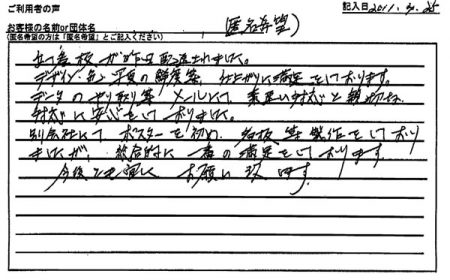 ご利用者の声
記入日 2011.3.25
お客様の名前or団体名
(匿名希望の方は「匿名」とご記入ください)
(匿名希望)
立看板が昨日配送されました。
デザイン・色・写真の鮮度等、仕上がりに満足をしております。
データのやり取り等 メールにて 素早い対応と親切な
対応に安心をしておりました。
別会社にて ポスターを初め、看板等製作をしており
ましたが、総合的に一番の満足をしております。
今後とも宜しく お願い致します。